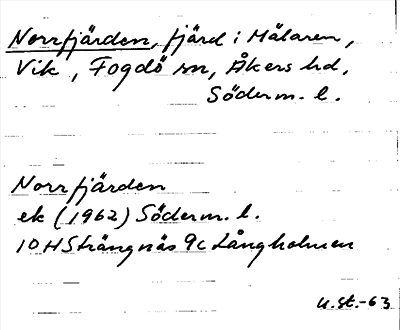 Norrfjärden, fjärd i Mälaren,
Vik, Fogdö sn, Åkers hd,
Söderm. l.
Norrfjärden
ek (1962) Söderm. l.
10H Strängnäs 9c Långholmen
U.St.-63